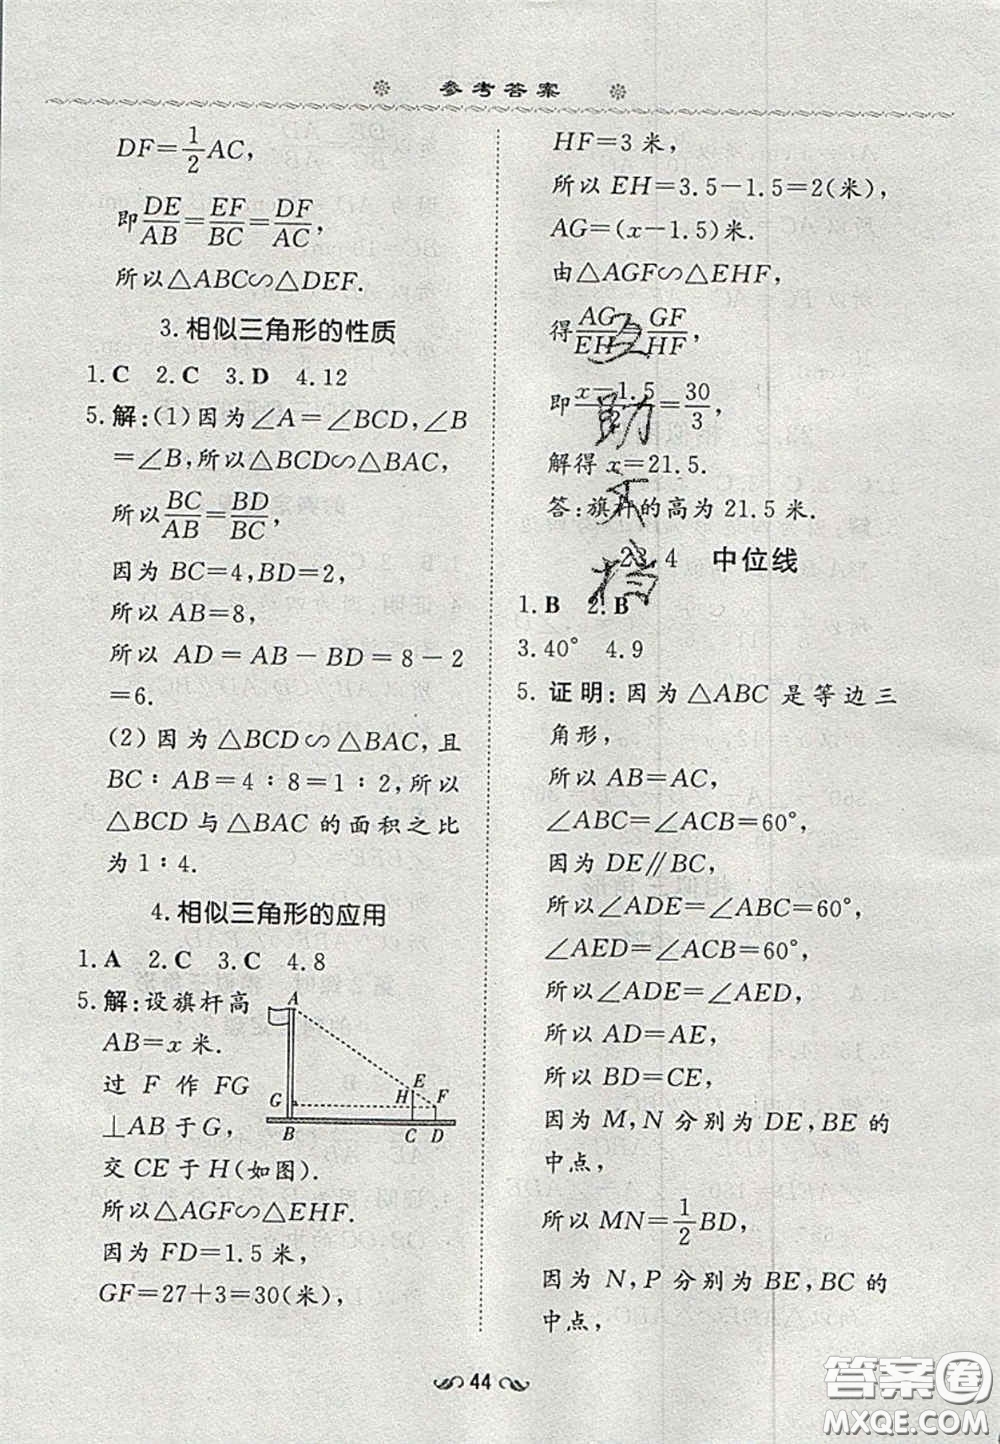 参考答案
DF=1/2 AC,
即DE/AB=EF/BC=DF/AC,
所以△ABC∽△DEF.
3.相似三角形的性质
1.C 2.C 3.D 4.12
5.解:(1)因为∠A=∠BCD,∠B
=∠B,所以△BCD∽△BAC,
所以BC/AB=BD/BC,
因为 BC=4,BD=2,
所以 AB=8,
所以 AD=AB-BD=8-2
=6.
(2)因为△BCD∽△BAC,且
BC∶AB=4∶8=1∶2,所以
△BCD与△BAC的面积之比
为1∶4.
4.相似三角形的应用
1.A 2.C 3.C 4.8
5.解:设旗杆高
AB=x米.
过 F 作 FG
⊥AB于G,
交CE于H(如图).
所以△AGF∽△EHF.
因为 FD=1.5米,
GF=27+3=30(米),
A
E
H
F
G
B
C
D
HF=3米,
所以EH=3.5-1.5=2(米),
AG=(x-1.5)米.
由△AGF∽△EHF,
得AG/EH=GF/HF,
即x-1.5/2=30/3,
解得x=21.5.
答:旗杆的高为21.5米.
23.4 中位线
1.B 2.B
3.40° 4.9
5.证明:因为△ABC是等边三
角形,
所以AB=AC,
∠ABC=∠ACB=60°,
因为DE∥BC,
所以∠ADE=∠ABC=60°,
∠AED=∠ACB=60°,
所以∠ADE=∠AED,
所以AD=AE,
所以BD=CE,
因为M,N分别为DE,BE的
中点,
所以MN=1/2 BD,
因为N,P分别为BE,BC的
中点,
44
互助文档
答案圈
MXQE.COM